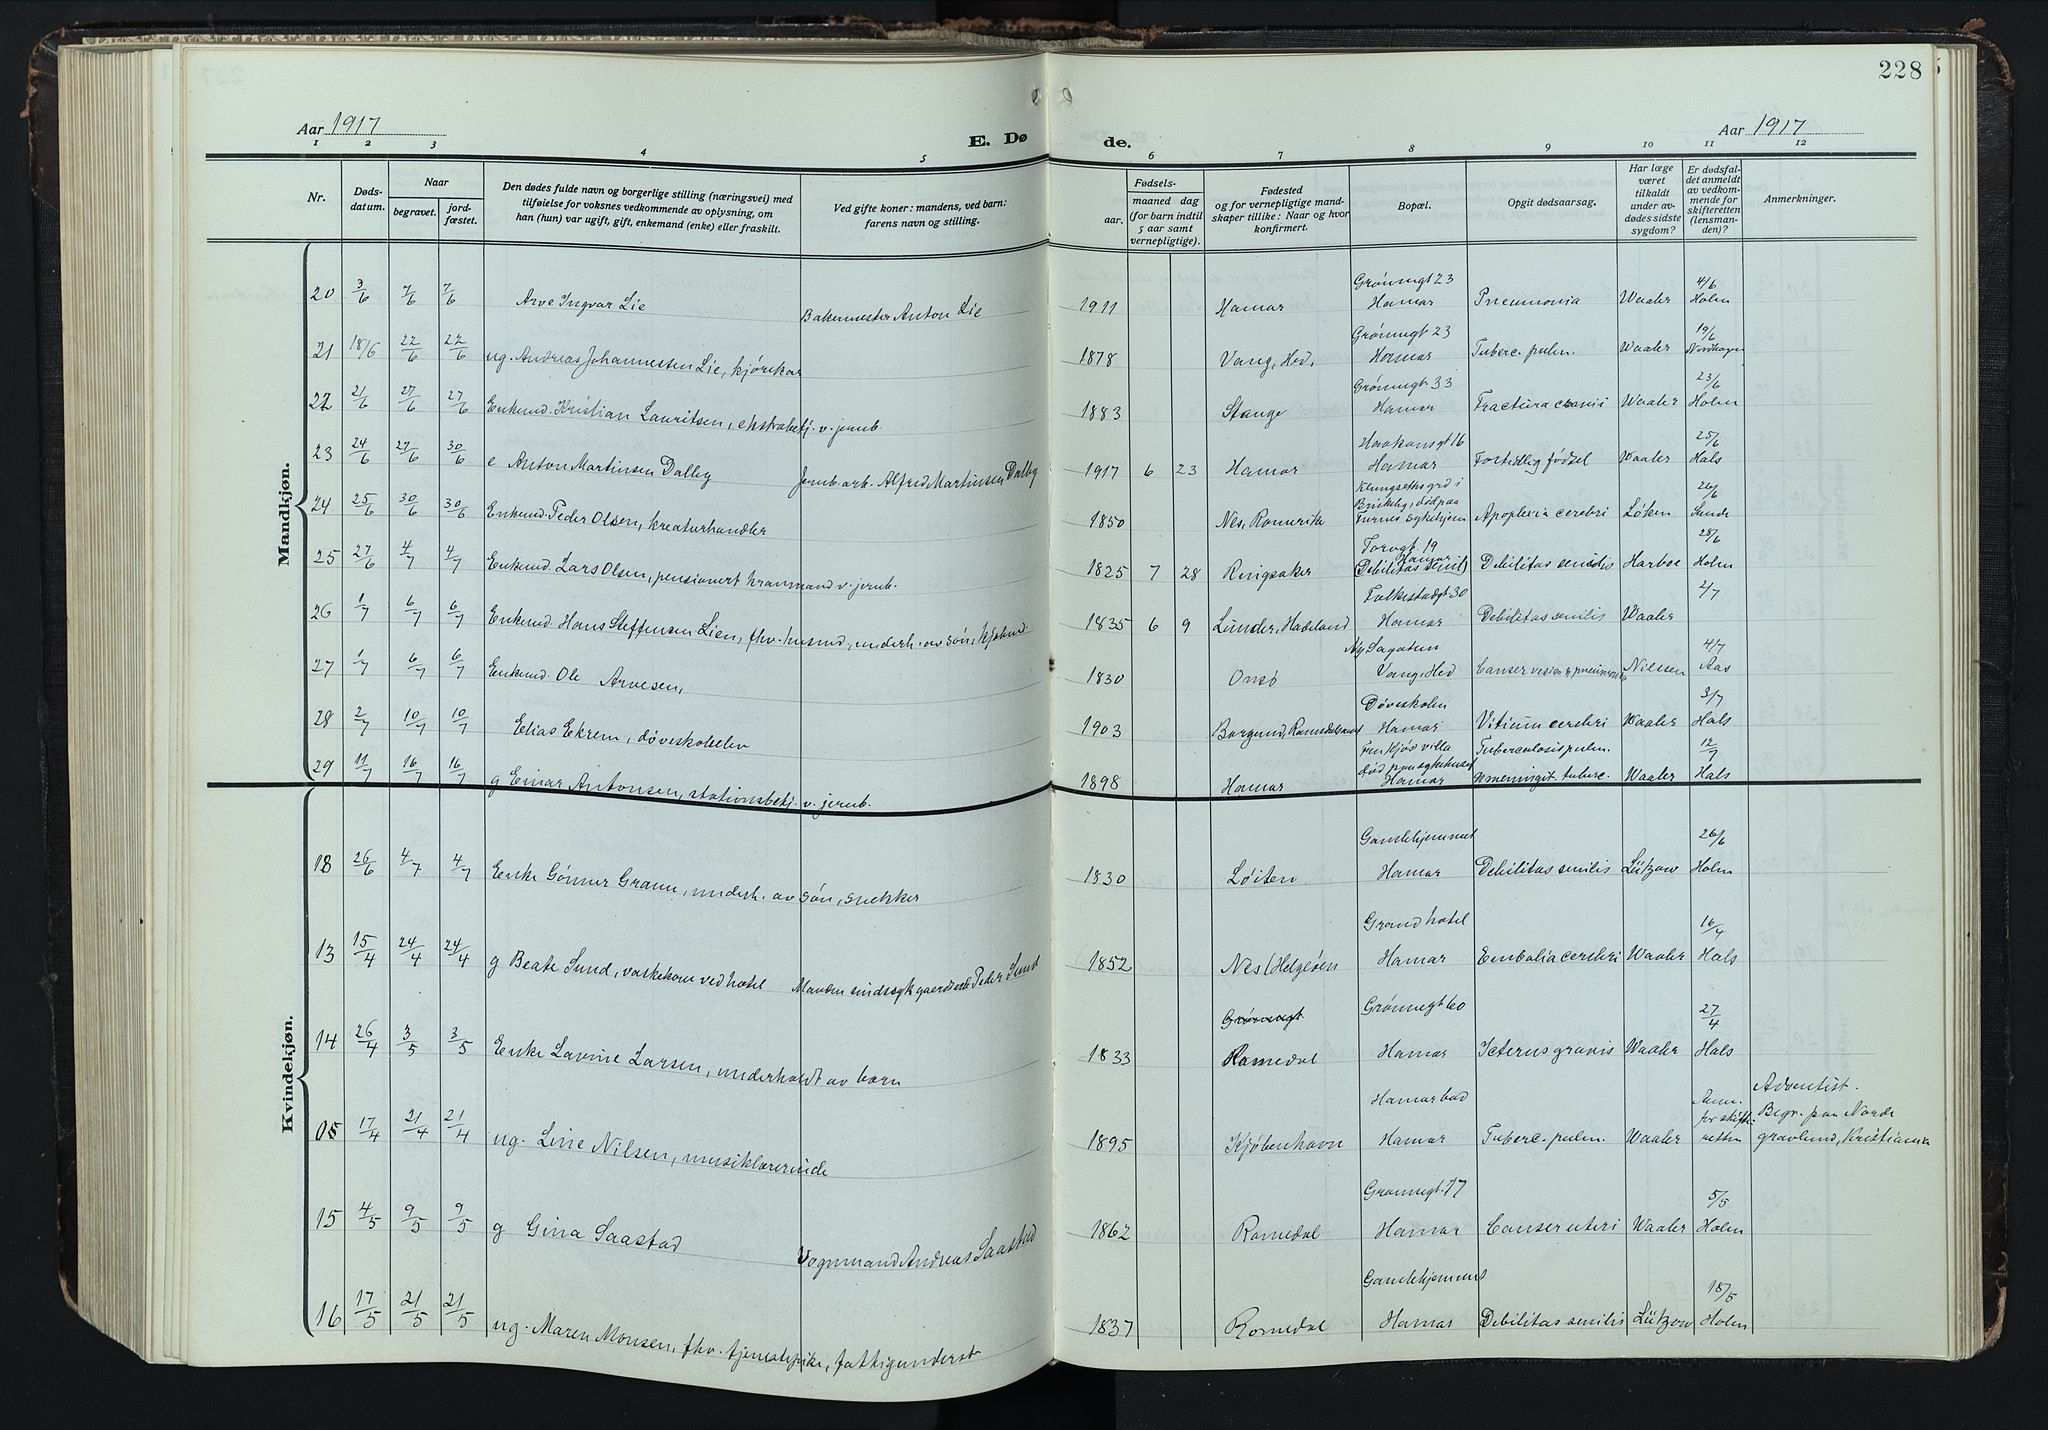 228
Aar 1917
E. Dø de.
Aar 1917
1 2 3 4 5 6 7 8 9 10 11 12
Nr.
Døds-
datum.
Naar
begravet.
jord-
fæstet.
Den dødes fulde navn og borgerlige stilling (næringsvei) med
tilføielse for voksnes vedkommende av oplysning, om
han (hun) var ugift, gift, enkemand (enke) eller fraskilt.
Ved gifte koner: mandens, ved barn:
farens navn og stilling.
Fødsels-
aar.
maaned dag
(for barn indtil
5 aar samt
vernepligtige).
Fødested
og for vernepligtige mand-
skaper tillike: Naar og hvor
konfirmert.
Bopæl.
Opgit dødsaarsag.
Har læge
været
tilkaldt
under av-
dødes sidste
sygdom?
Er dødsfal-
det anmeldt
av vedkom-
mende for
skifteretten
(lensman-
den)?
Anmerkninger.
Mandkjøn.
Grønnegt 23 4/6
20 3/6 7/6 7/6 Arve Ingvar Lie Bakermester Anton Lie 1911 Hamar Hamar Pneumonia Waaler Holm
Grønnegt 23 19/6
21 18/6 22/6 22/6 ug. Andreas Johannessen Lie, kjørekar 1878 Vang, Hed. Hamar Tuberc. pulm. Waaler Nordhagen
Grønnegt 33 23/6
22 21/6 27/6 27/6 Enkemd. Kristian Lauritsen, ekstrabetj. v. jernb. 1883 Stange Hamar Fractura cranii Waaler Holm
Haakonsgt 16 25/6
23 24/6 27/6 30/6 e Anton Martinsen Dalby Jernb.arb. Alfred Martinsen Dalby 1917 6 23 Hamar Hamar Fortidlig fødsel Waaler Hals
Klungseths grd i 26/6
død paa
24 25/6 30/6 30/6 Enkemd. Peder Olsen, kreaturhandler 1850 Nes, Romerike Furnes sykehjem Apoplexia cerebri Løken Sunde
Torvgt. 19 28/6
Hamar
25 27/6 4/7 4/7 Enkemd. Lars Olsen, pensionert kranmand v. jernb. 1825 7 28 Ringsaker (Debilitas senil) Debilitas senilis Harboe Holm
Folkestadgt 30 2/7
26 1/7 6/7 6/7 Enkemd Hans Steffensen Lien, fhv. husmd, underh. av søn, 1835 6 9 Lunder, Hadeland Hamar Debilitas senilis Waaler
Ny Sagatun 4/7
27 1/7 6/7 6/7 Enkemd. Ole Arvesen, 1830 Onsø Vang, Hed Cancer Nilssen Aas
Døveskolen 3/7
28 2/7 10/7 10/7 Elias Ekrem, døveskoleelev 1903 Borgund, Romsdalsamt Hamar Vitium cerebri Waaler Hals
villa Tuberculosis pulm. 12/7
død paa sykehuset
29 11/7 16/7 16/7 g Einar Antonsen, stationsbetj. v. jernb. 1898 Hamar Hamar meningit. tuberc. Waaler Hals
Kvindekjøn.
Gamlehjemmet 26/6
18 26/6 4/7 4/7 Enke Gønner Gram, underh. av søn, snekker 1830 Løiten Hamar Debilitas senilis Lützow Holm
Grand hotel 16/4
13 15/4 24/4 24/4 g Beate Sund, vaskekone ved hotel Manden sindssyk Peder Sund 1852 Nes (Helgøen Hamar Embolia cerebri Waaler Hals
Grønnegt Grønnegt 60 27/4
14 26/4 3/5 3/5 Enke Lavine Larsen, underholdt av børn 1833 Romedal Hamar Icterus gravis Waaler Hals
Hamar bad Anm. Adventist.
for skifte- Begr. paa Nordre
05 17/4 21/4 21/4 ug. Line Nilsen, musiklærerinde 1895 Kjøbenhavn Hamar Tuberc. pulm. Waaler retten gravlund, Kristiania
Grønnegt. 77 5/5
15 4/5 9/5 9/5 g Gina Saastad Vognmand Andreas Saastad 1862 Romedal Hamar Canser uteri Waaler Holm
Gamlehjemmet 18/5
16 17/5 21/5 21/5 ug. Maren Monsen, fhv. tjenestepike, fattigunderst 1837 Romedal Hamar Debilitas senilis Lützow Holm